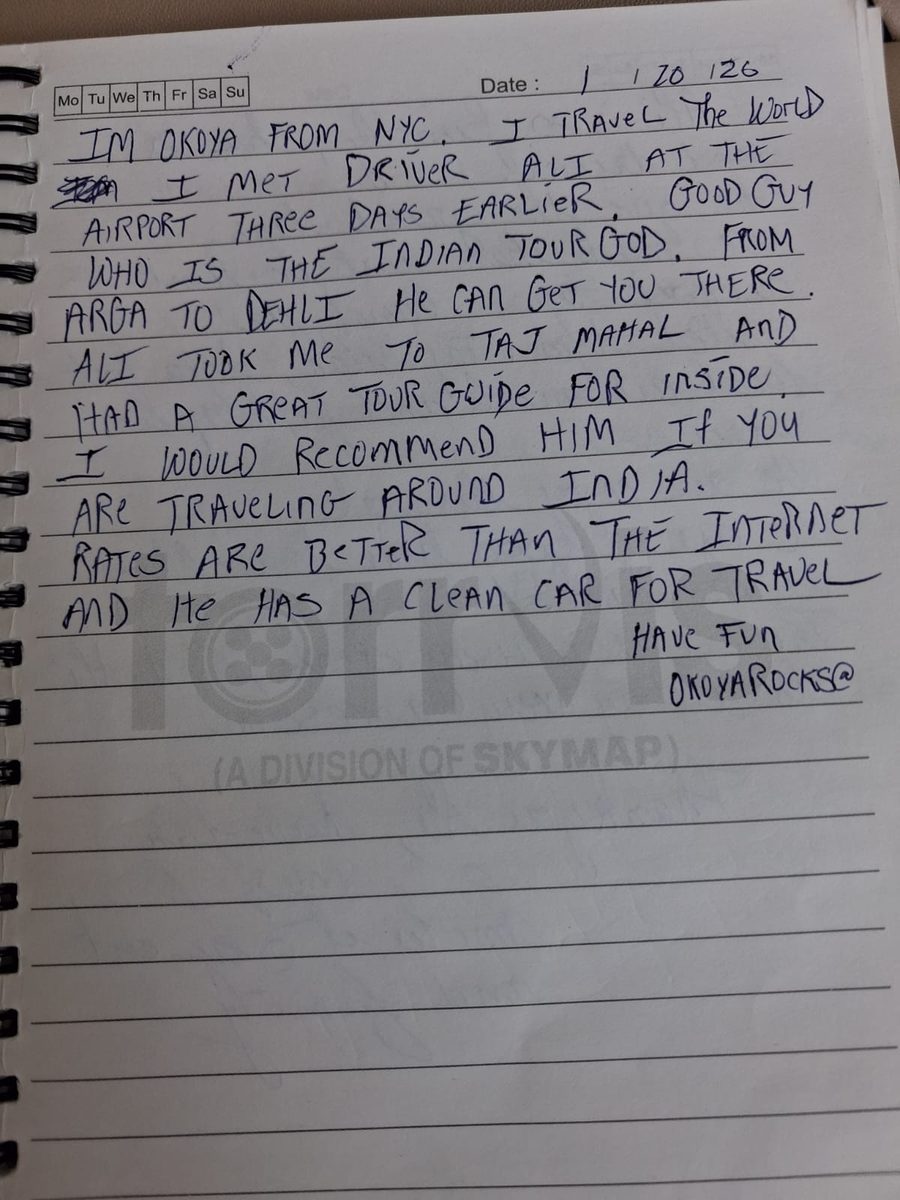 Mo Tu We Th Fr Sa Su
Date : 1 / 20 / 26
IM OKOYA FROM NYC. I TRAVEL The WORLD
I MeT DRiVeR ALI AT THE
AIRPORT THRee DAYS EARLieR. GOOD GUY
WHO IS THE INDIAN TOUR GOD. FROM
ARGA TO DEHLI He CAN GeT YOU THERE.
ALI TOOK Me TO TAJ MAHAL AND
HAD A GReAT TOUR GUiDe FOR INSiDe.
I WOULD RecommenD HIM If YOU
ARe TRAVeLING AROUND INDIA.
RATes ARe BeTTeR THAN THE INTeRNeT
AND He HAS A CLeAN CAR FOR TRAVeL
HAVe FUN
OKOYAROCKS@
(A DIVISION OF SKYMAP)